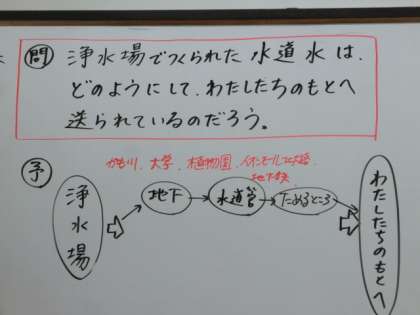 問
浄水場でつくられた水道水は、
どのようにして、わたしたちのもとへ
送られているのだろう。
予
かも川、大学、植物園、イオンモール
地下鉄
浄水場
地下
水道管
ためるところ
わたしたちのもとへ